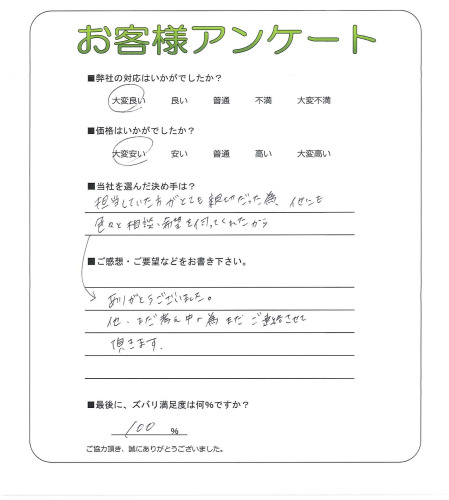 お客様アンケート
■弊社の対応はいかがでしたか？
大変良い 良い 普通 不満 大変不満
■価格はいかがでしたか？
大変安い 安い 普通 高い 大変高い
■当社を選んだ決め手は？
担当していた方がとても親切だった為、他にも
色々と相談、希望を付ってくれたから
■ご感想・ご要望などをお書き下さい。
ありがとうございました。
他、まだ考え中の為まだご連絡させて
頂きます。
■最後に、ズバリ満足度は何％ですか？
100 ％
ご協力頂き、誠にありがとうございました。